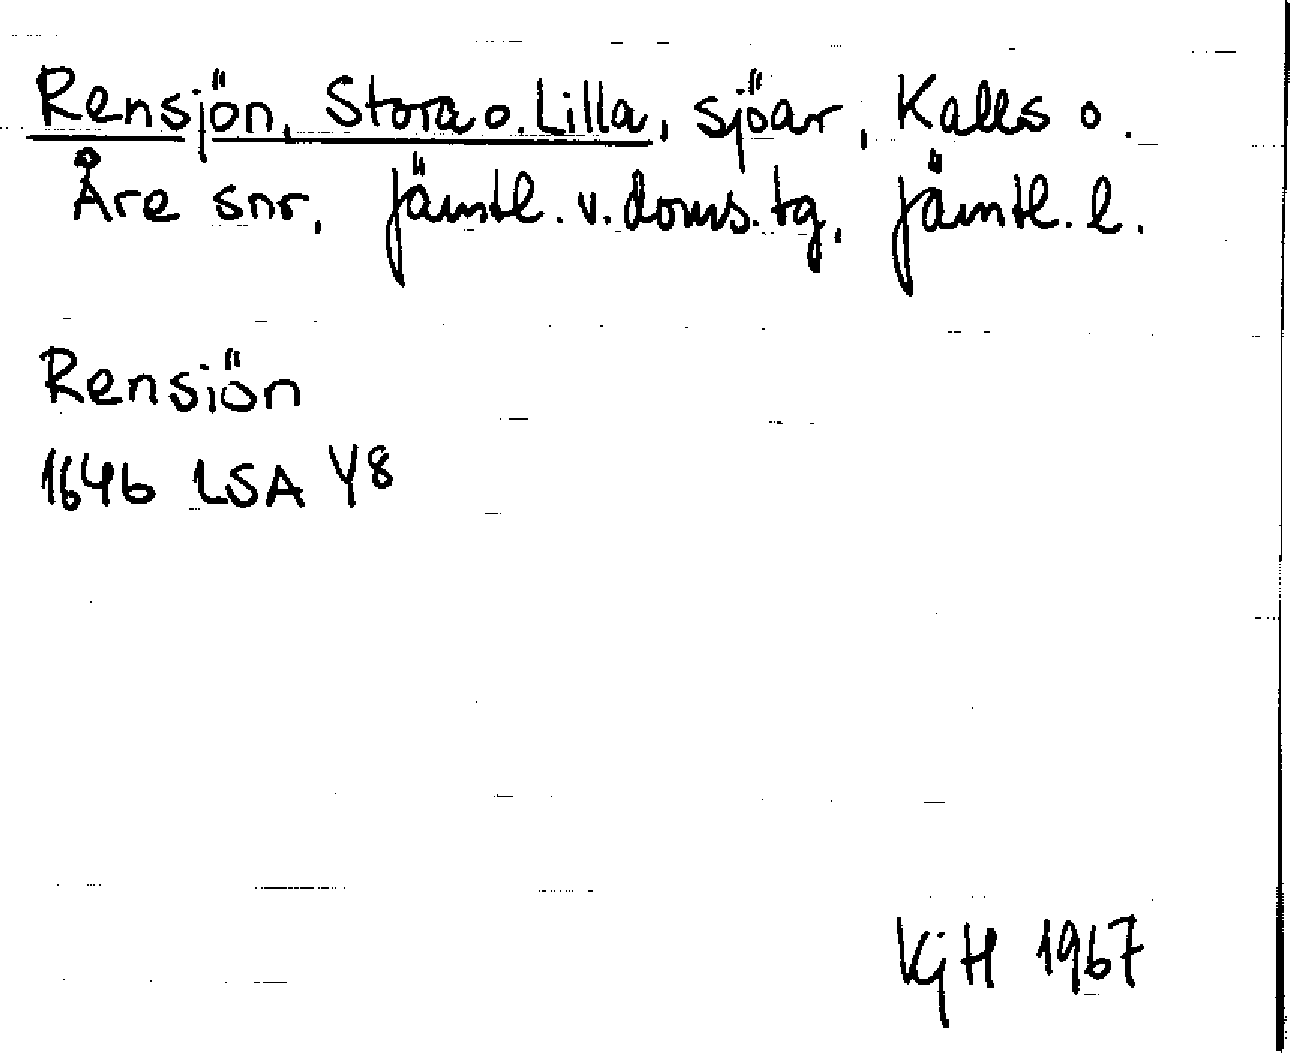 Rensjön, Stora o. Lilla, sjöar, Kalls o.
Åre snr, Jämtl. v. doms. tg, Jämtl. l.
Rensiön
1646 LSA Y8
KjH 1967